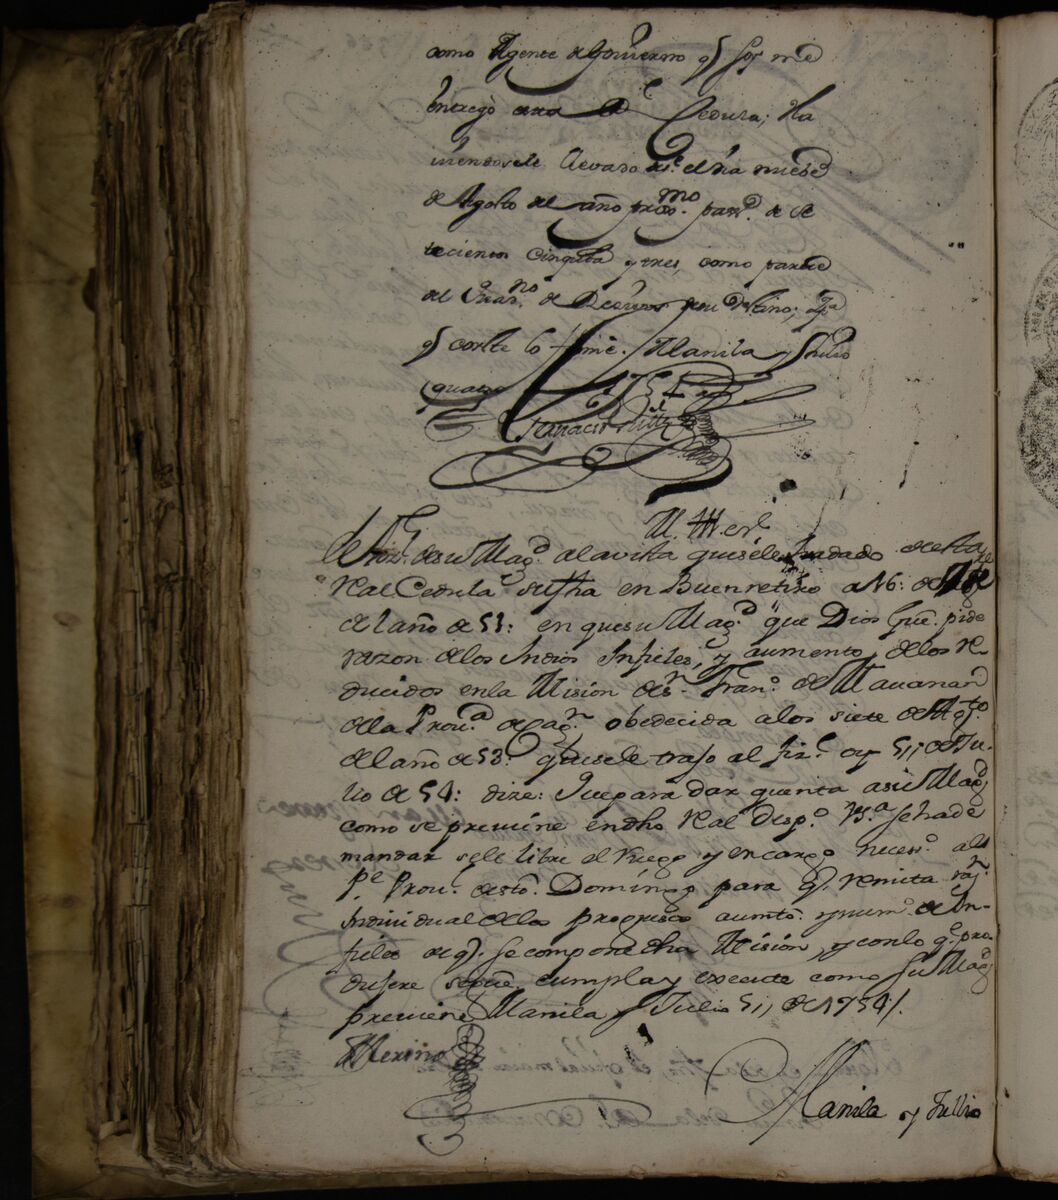 como Agente de Govierno q.e soy me
entregó esta R.l Cedula; Ha
viendosele llevado el dia nuebe
de Agosto del año prox.mo pas.do de se
tecientos Cinq.ta y tres, como parece
del de su destino; y p.a
q.e conste lo firmé. Manila y Julio
quatro 1754
Ignacio
M. Ill.e S.r
el Fis.l de su Mag.d a la vista que se le ha dado de esta
Real Cedula su fha en Buen retiro a 16: de
del año de 51: en que su Mag.d que Dios Gūe. pide
razon de los Indios Infieles, y aumento de los re-
ducidos en la Mision de S.n Fran.co de
de la Prov.a de Cag.n obedecida a los siete de Ag.to
del año de 53: que se le trajo al fis.l oy 5,, de Ju-
lio de 54: dize: Que para dar quenta a su Mag.d
como se previene en dho Real Desp.o V.S.a se ha de
mandar se le libre el Ruego y encargo neces.o al
P.e Prov.l de sto. Domingo para q.e remita raz.n
Individual de los progresos aumto. y num.o de In-
fieles de q.e se compone dha Mision, y con lo q.e pro-
dujere se cumpla y execute como Su Mag.d
previene Manila y Julio 5,, de 1754,,
Merino
Manila y Jullio